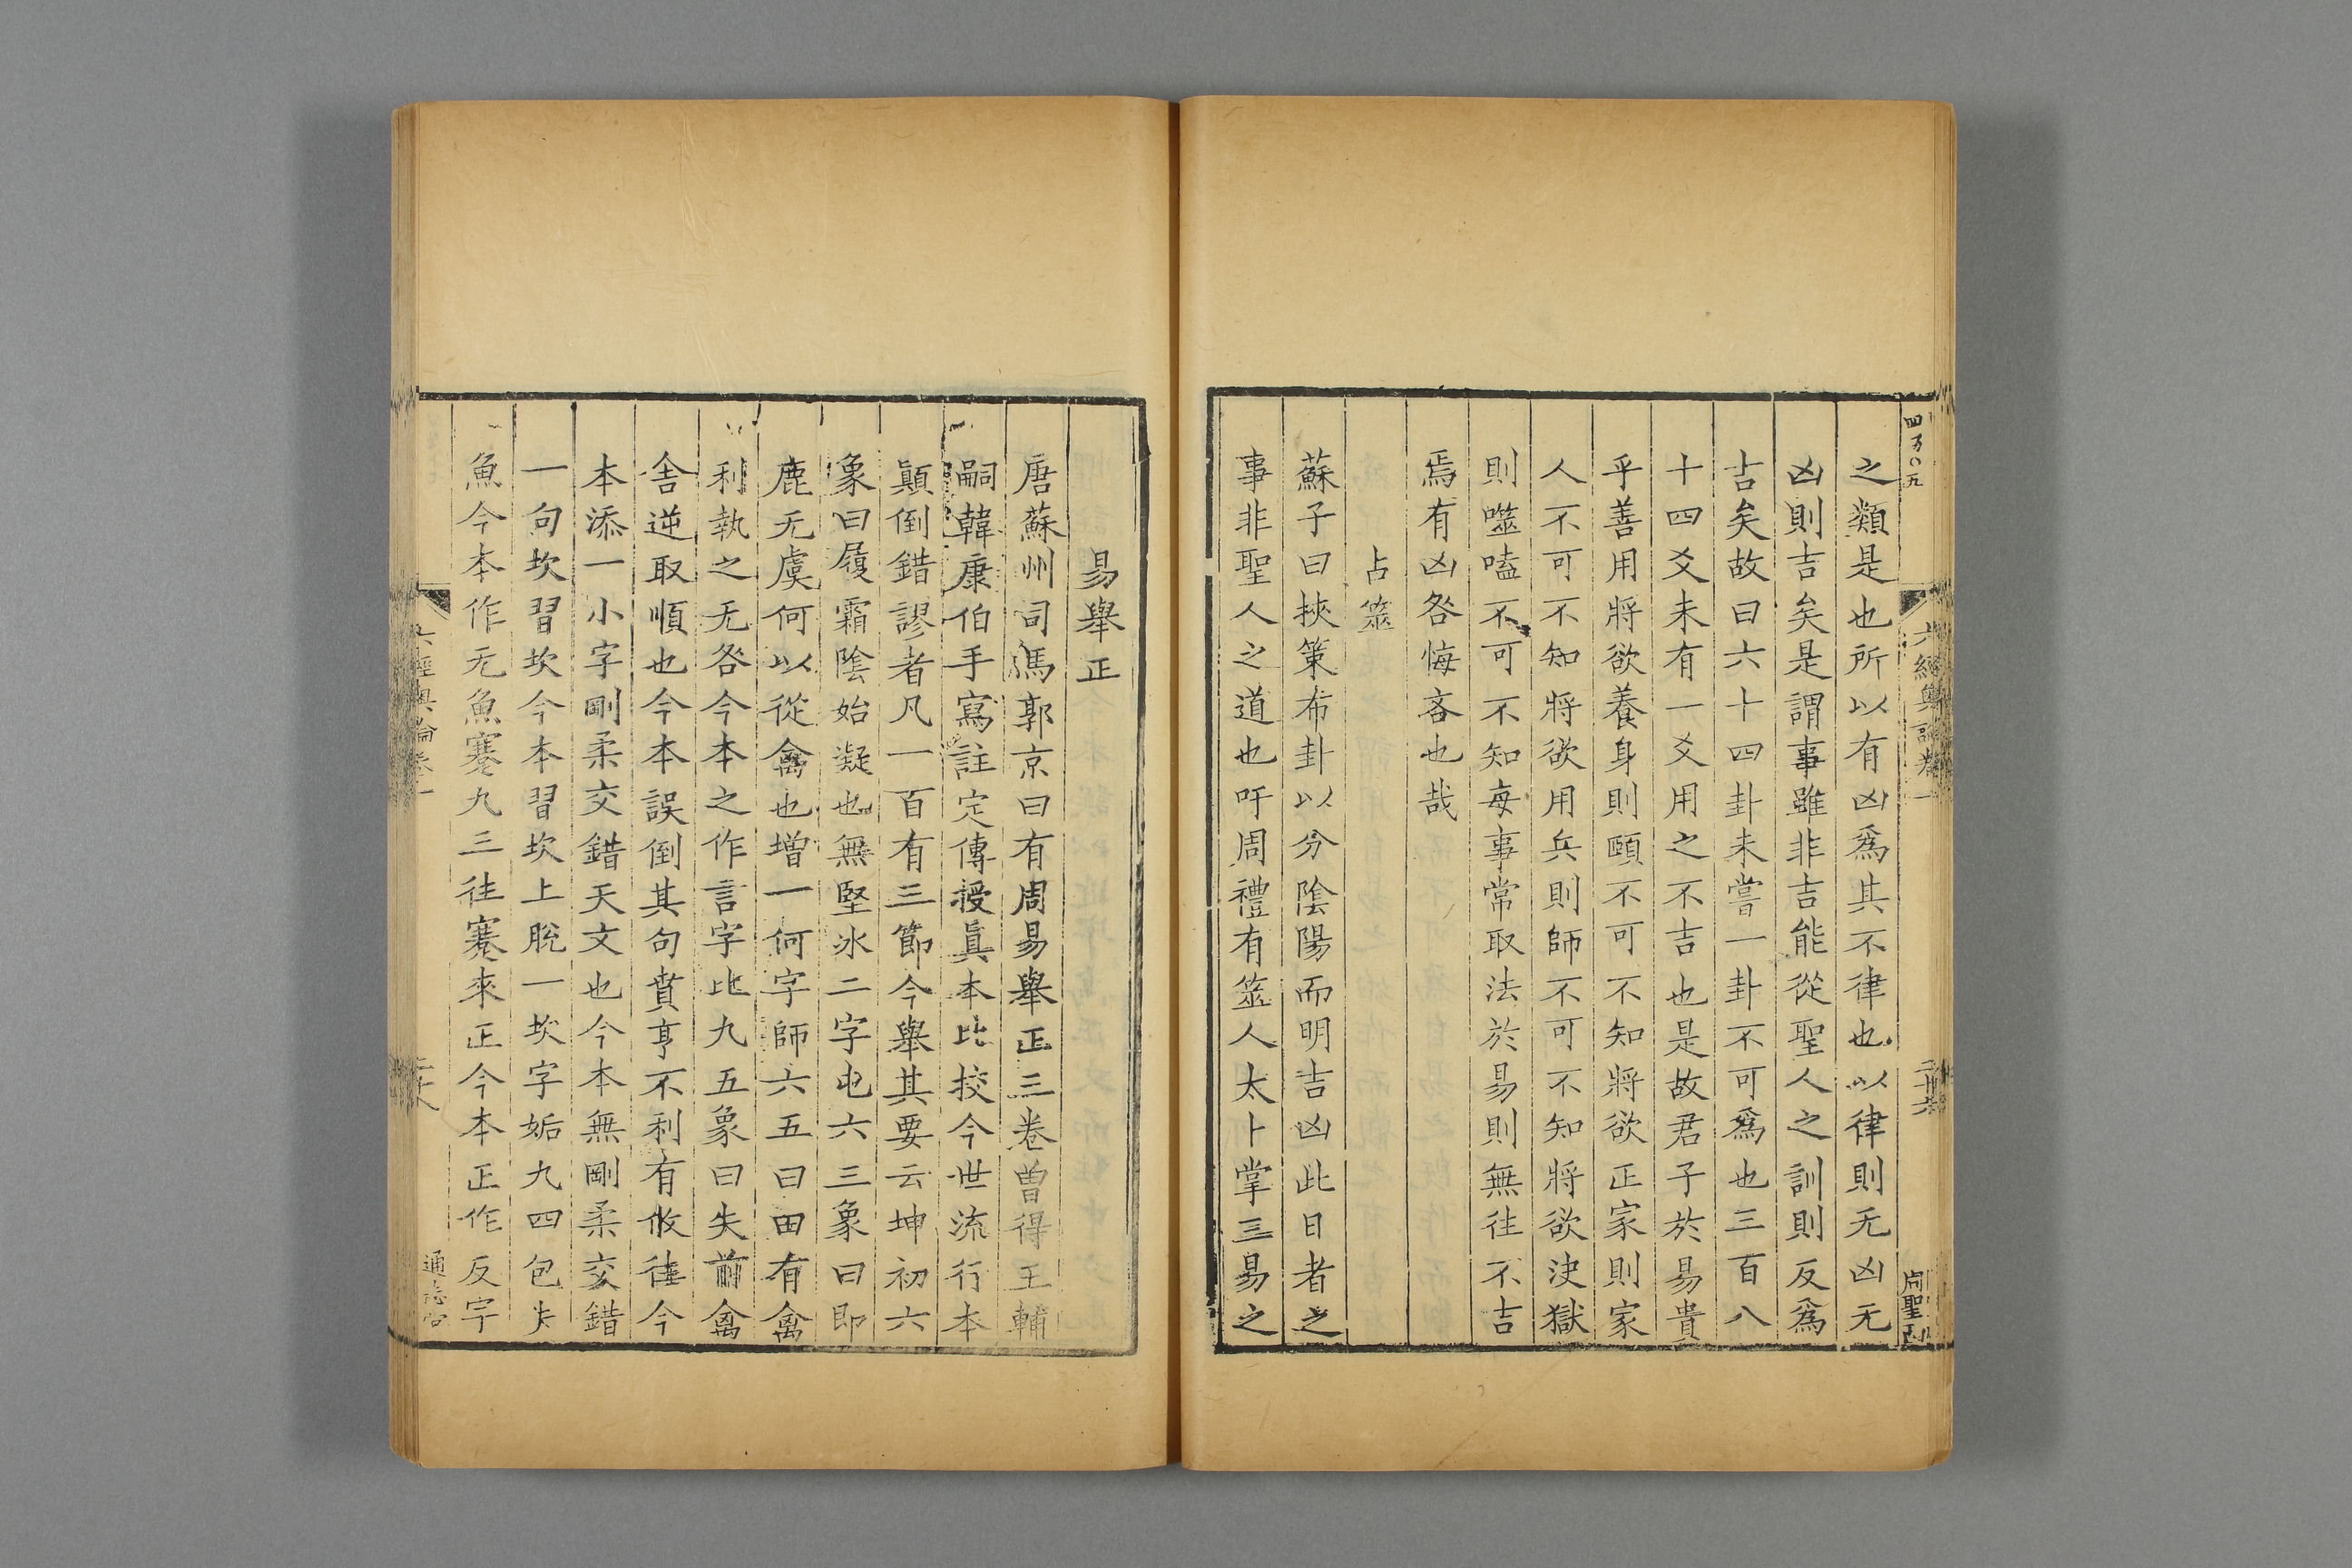 四百〇九
六經奧論卷一
之類是也所以有凶爲其不律也以律則无凶无
凶則吉矣是謂事雖非吉能從聖人之訓則反爲
吉矣故曰六十四卦未嘗一卦不可爲也三百八
十四爻未有一爻用之不吉也是故君子於易貴
乎善用將欲養身則頤不可不知將欲正家則家
人不可不知將欲用兵則師不可不知將欲決獄
則噬嗑不可不知每事常取法於易則無往不吉
焉有凶咎悔吝也哉
占筮
蘇子曰挾策布卦以分陰陽而明吉凶此日者之
事非聖人之道也吁周禮有筮人太卜掌三易之
易舉正
唐蘇州司馬郭京曰有周易舉正三卷曾得王輔
嗣韓康伯手寫註定傳授眞本比挍今世流行本
顚倒錯謬者凡一百有三節今舉其要云坤初六
象曰履霜陰始凝也無堅冰二字屯六三象曰即
鹿无虞何以從禽也增一何字師六五曰田有禽
利執之无咎今本之作言字比九五象曰失前禽
舍逆取順也今本誤倒其句賁亨不利有攸徃今
本添一小字剛柔交錯天文也今本無剛柔交錯
一句坎習坎今本習坎上脫一坎字姤九四包失
魚今本作无魚蹇九三徃蹇來正今本正作反字
六經奧論卷一
通志堂